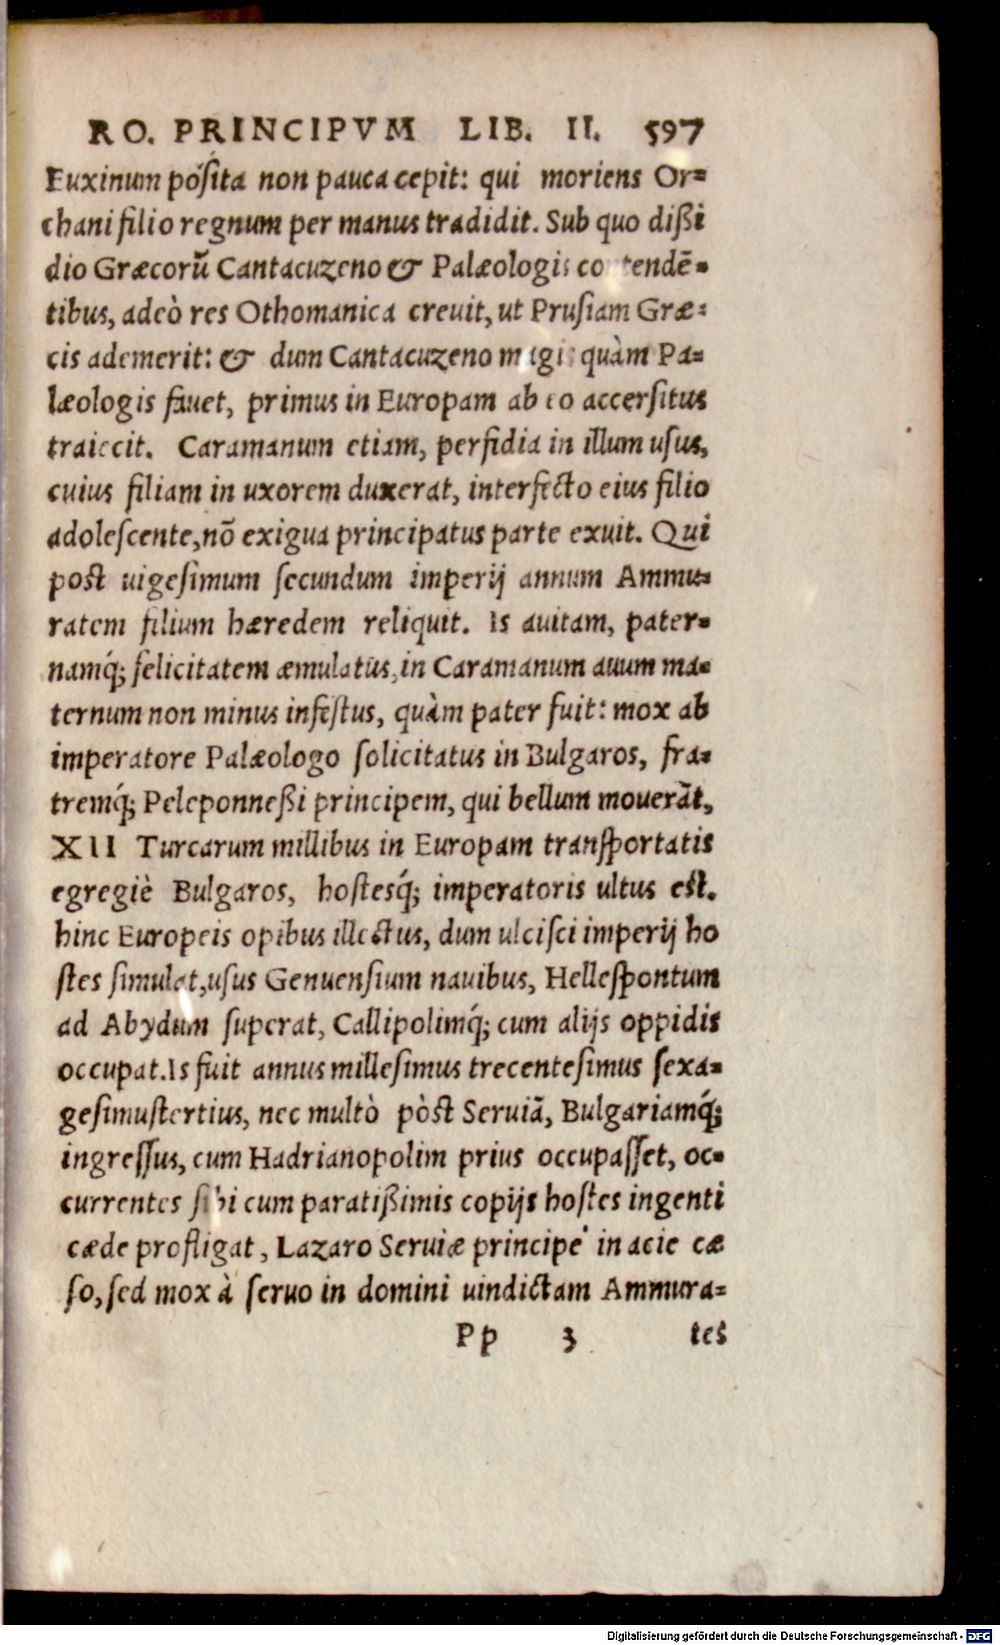 RO. PRINCIPVM LIB. II. 597
Euxinum posita non pauca cepit: qui moriens Or=
chani filio regnum per manus tradidit. Sub quo dißi
dio Græcorū Cantacuzeno & Palæologis contendē=
tibus, adeò res Othomanica creuit, ut Prusiam Græ=
cis ademerit: & dum Cantacuzeno magis quàm Pa=
læologis fauet, primus in Europam ab eo accersitus
traiecit. Caramanum etiam, perfidia in illum usus,
cuius filiam in uxorem duxerat, interfecto eius filio
adolescente, nō exigua principatus parte exuit. Qui
post uigesimum secundum imperij annum Ammu=
ratem filium hæredem reliquit. Is auitam, pater=
namq́; felicitatem æmulatus, in Caramanum auum ma=
ternum non minus infestus, quàm pater fuit: mox ab
imperatore Palæologo solicitatus in Bulgaros, fra=
tremq́; Peleponneßi principem, qui bellum mouerāt,
XII Turcarum millibus in Europam transportatis
egregiè Bulgaros, hostesq́; imperatoris ultus est.
hinc Europeis opibus illectus, dum ulcisci imperij ho
stes simulat, usus Genuensium nauibus, Hellespontum
ad Abydum superat, Callipolimq́; cum alijs oppidis
occupat. Is fuit annus millesimus trecentesimus sexa=
gesimustertius, nec multò pòst Seruiā, Bulgariamq́;
ingressus, cum Hadrianopolim prius occupasset, oc=
currentes sibi cum paratißimis copijs hostes ingenti
cæde profligat, Lazaro Seruiæ principe in acie cæ
so, sed mox à seruo in domini uindictam Ammura=
Pp 3 tes
Digitalisierung gefördert durch die Deutsche Forschungsgemeinschaft - DFG